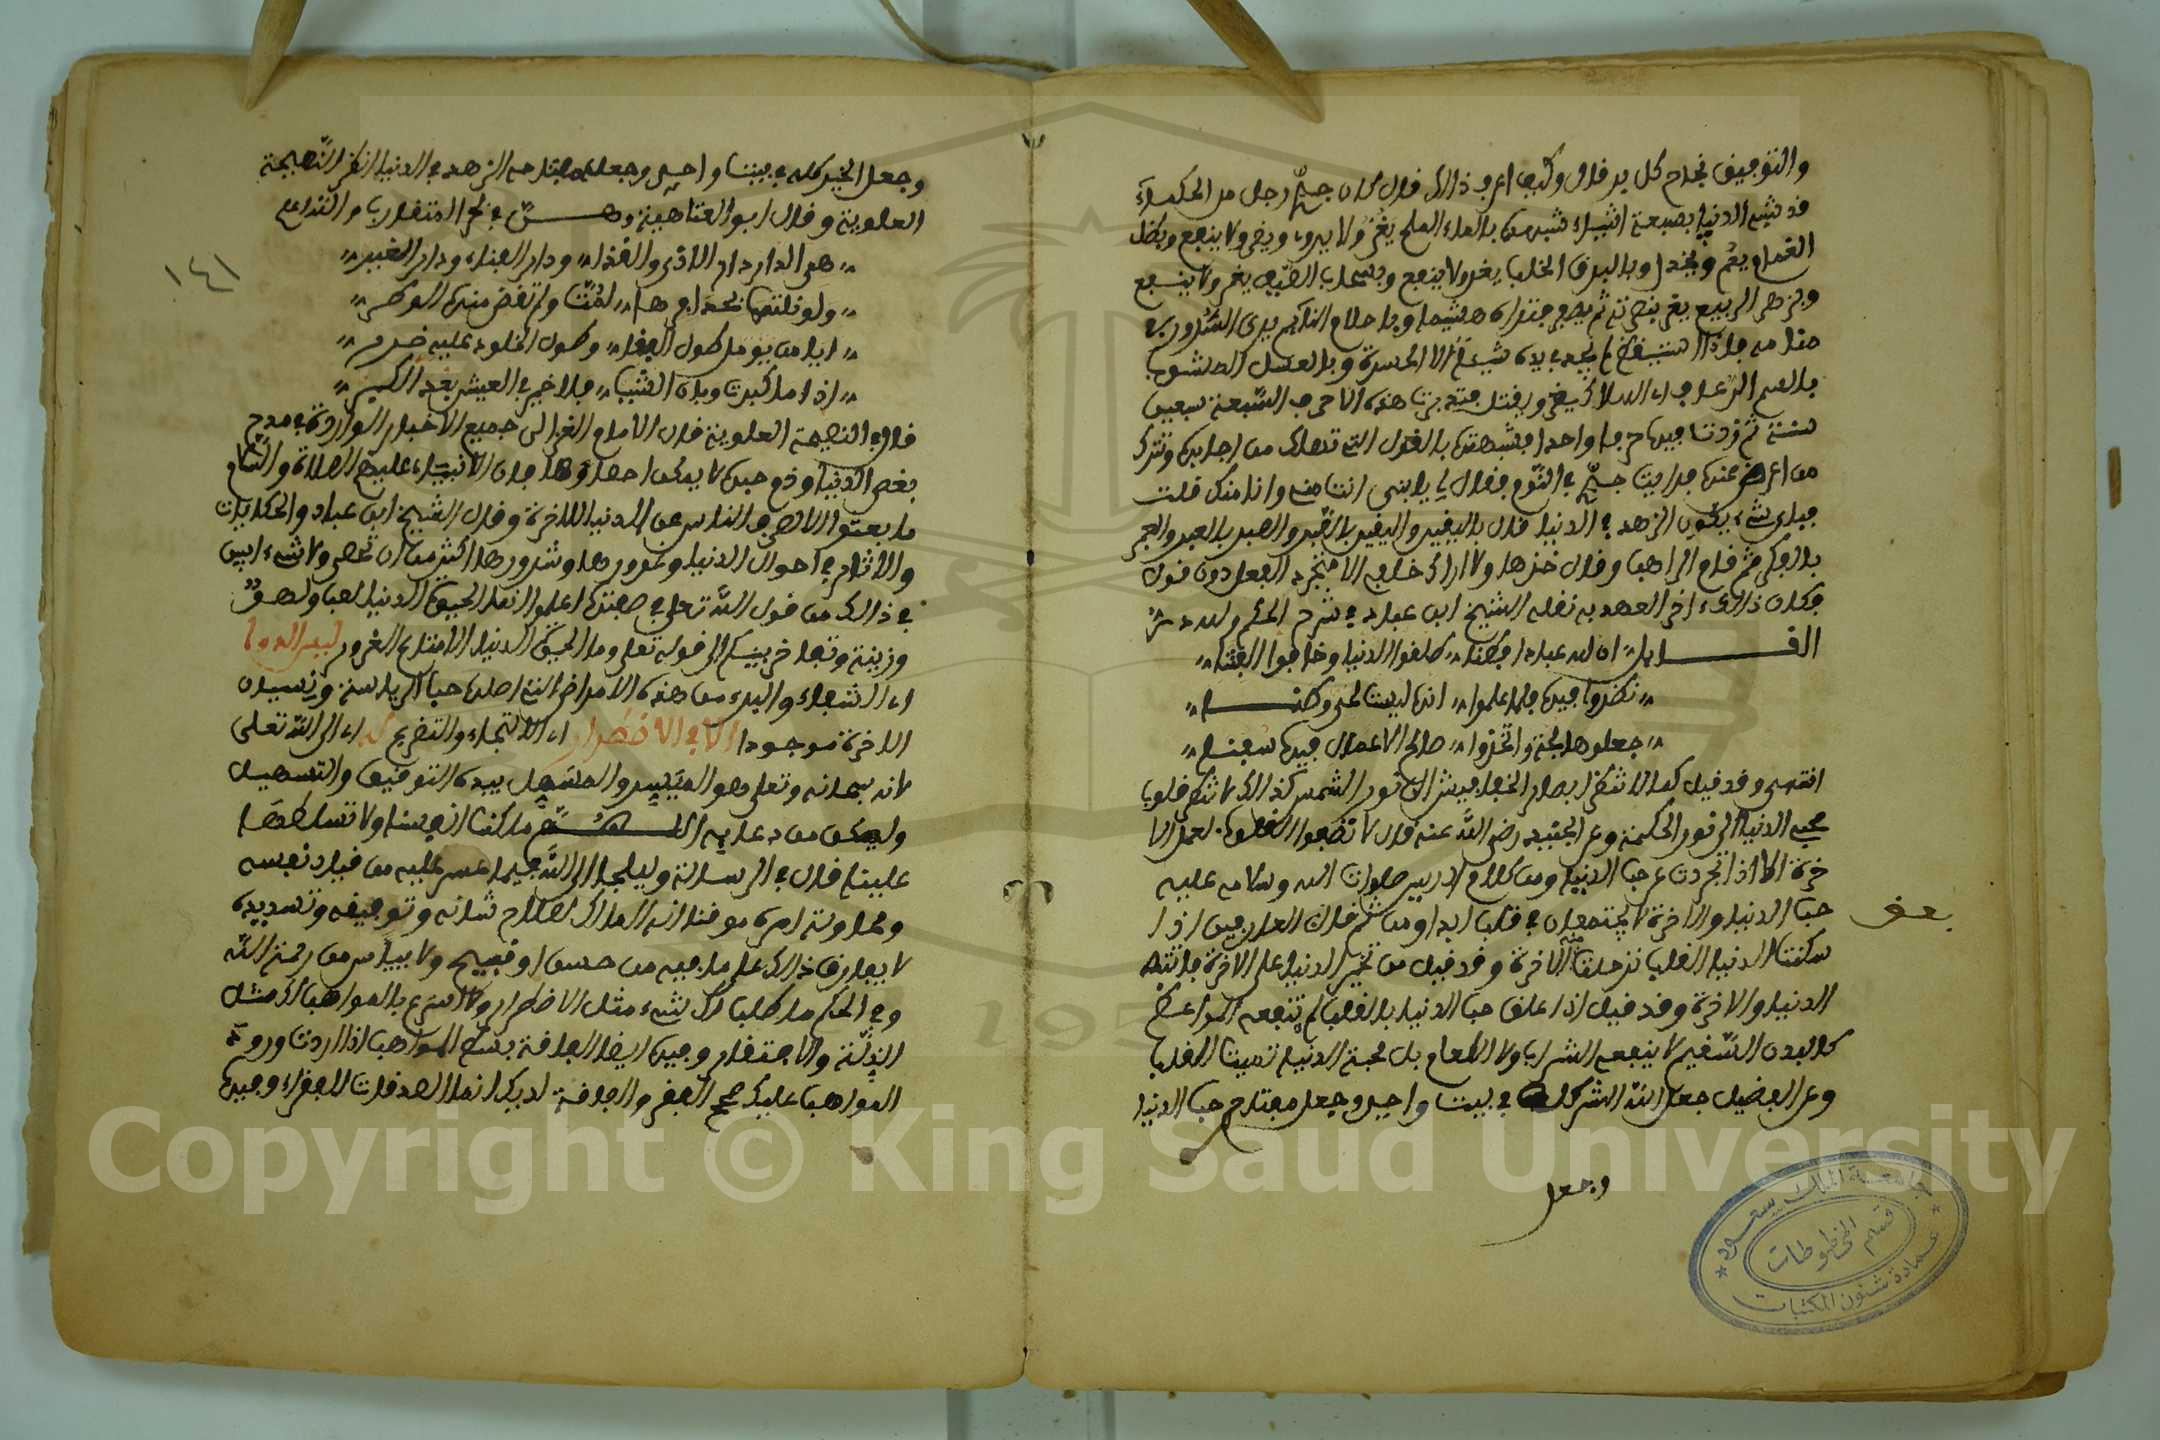 والتوفيق نجاح كل بر قال وكيف اعرف ذالك قال كان جدي رجل من الحكماء
قد شبه الدنيا بسبعة اشياء شبهها بالماء الملح يغر ولا يروي ويضر ولا ينفع وبظل
الغمام يغر ويخذل وبالبرق الخلب يغر ولا ينفع وبسحاب الصيف يغر ولا ينفع
وبزهر الربيع يغر بنضرته ثم يصفر فتراه هشيما وباحلام النائم يرى السرور في
منامه فاذا استيقظ لم يجد في يده شيئا الا الحسرة وبالعسل المشوب
بالسم الزعاف الذي يغر ويقتل فتدبرت هذه الاحرف السبعة سبعين
سنة ثم زدت فيها حرفا واحدا فشبهتها بالغول التي تهلك من اجابها وتترك
من اعرض عنها فرايت جدي في النوم فقال لي يا بني انت مني وانا منك قلت
فباي شيء يكون الزهد في الدنيا قال باليقين واليقين بالصبر والصبر بالعبر والعبر
بالفكر ثم قام الراهب وقال خذها ولا اراك خلفي الا متجردا لفعل دون قول
فكان ذالك اخر العهد به نقله الشيخ ابن عباد في شرح الحكم ولله در
القايل ان لله عبادا فطنا طلقوا الدنيا وخافوا الفتنا
نظروا فيها فلما علموا انها ليست لحي وطنا
جعلوها لجة واتخذوا صالح الاعمال فيها سفنا
انتهى وقد قيل كما لا تنظر ابصار الخفافيش الى نور الشمس كذالك لا تنظر قلوب
محبي الدنيا الى نور الحكمة وعن الجنيد رضي الله عنه قال لا تطمع القلوب لعمل الا
خرة الا اذا تجردت عن حب الدنيا ومن كلام ادريس صلوات الله وسلامه عليه
حب الدنيا والاخرة لا يجتمعان في قلب ابدا ومن ثم قال العارفين اذا
بعض
سكنت الدنيا القلب ترحلت منه الاخرة وقد قيل من تخير الدنيا على الاخرة فاتته
الدنيا والاخرة وقد قيل اذا علق حب الدنيا بالقلب لم تنفعه المواعظ
كالبدن السقيم لا ينفعه الشراب ولا الطعام بل محبة الدنيا تميت القلب
وعن الفضيل جعل الله الشر كله في بيت واحد وجعل مفتاح حب الدنيا
وجعل
١٤١
وجعل الخير كله في بيت واحد وجعل مفتاحه الزهد في الدنيا انظر النصيحة
العلوية وقال ابو العتاهية وهـ من بحر المتقارب
هي الدار دار الاذى والقذا ودار الفناء ودار الغير
ولو نلتها بحذافرها لمت ولم تقض منها الوطر
ايا من يومل طول البقا وطول الخلود عليه ضرر
اذا ما كبرت وبان الشباب فلا خير في العيش بعد الكبر
قال في النصيحة العلوية قال الامام الغزالي جميع الاخبار الواردة في مدح
بغض الدنيا وذم حبها لا يمكن احصاؤها فان الانبياء عليهم الصلاة والسلام
ما بعثوا الا لصرف الناس عن الدنيا للاخرة وقال الشيخ ابن عباد والحكايات
والاثار في احوال الدنيا وغرورها وشرورها اكثر من ان تحصر ولا شيء ابين
في ذالك من قول الله تعالى في صفتها اعلموا انما الحيوة الدنيا لعب ولهو
وزينة وتفاخر بينكم الى قوله تعالى وما الحيوة الدنيا الا متاع الغرور ليس الدوا
اي الشفاء والبرء من هذه الامراض التي اصلها حب الرياسة ونسيان
الاخرة موجودا الا في الاضطرار اي الالتجاء والتضرع له اي الى الله تعالى
لانه سبحانه وتعالى هو الميسر والمسهل بيده التوفيق والتسهيل
وليكن من دعايه اللهم ملكنا انفسنا ولا تسلطها
علينا قال في الرسالة وليلجا الى الله فيما عسر عليه من قياد نفسه
ومحاولة امره موقنا انه المالك لصلاح شانه وتوفيقه وتسديده
لا يفارق ذالك على ما فيه من حسن او قبيح ولا ييأس من رحمة الله
وفي الحكم ما طلب لك شيء مثل الاضطرار ولا اسرع بالمواهب لك مثل
الذلة والافتقار وفيها ايضا الفاقة بسط المواهب اذا اردت ورود
المواهب عليك صحح الفقر والفاقة لديك انما الصدقات للفقراء وفيها
جامعة الملك سعود
قسم المخطوطات
عمادة شئون المكتبات
Copyright © King Saud University